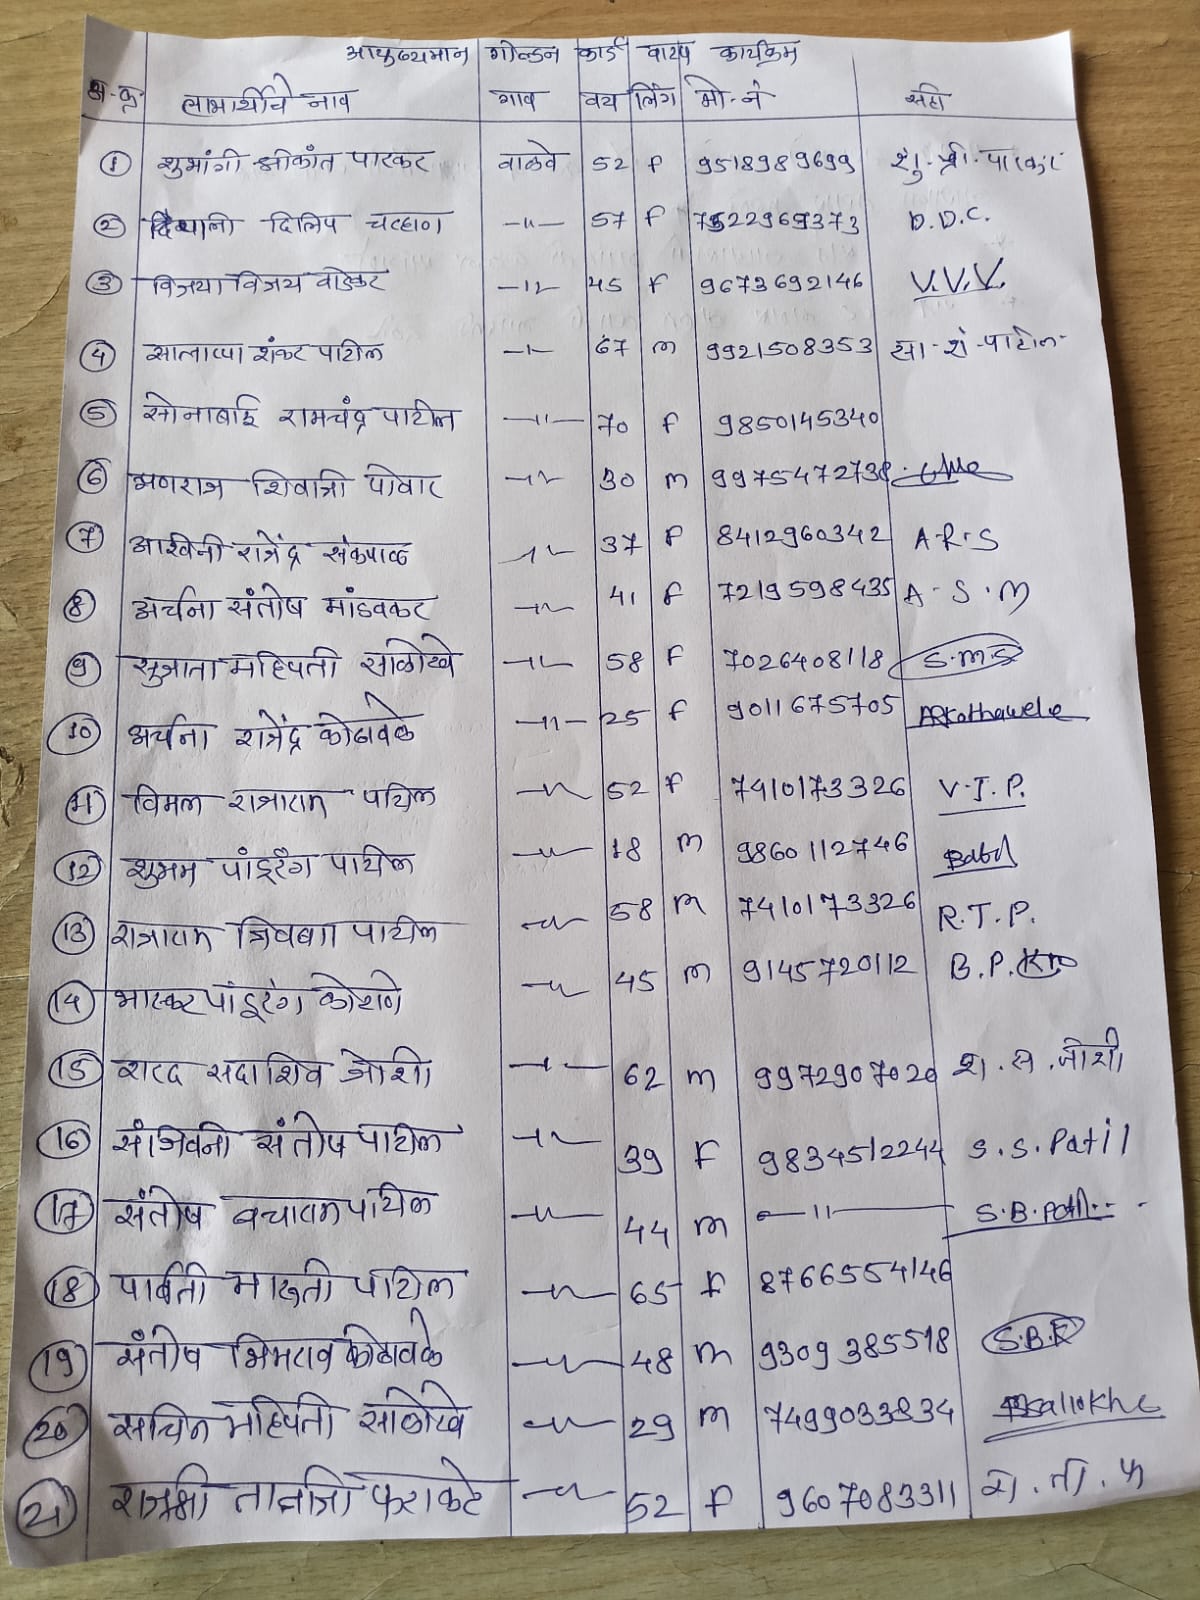 आयुष्यमान गोल्डन कार्ड वाटप कार्यक्रम
अ.क्र लाभार्थीचे नाव गाव वय लिंग मो.नं सही
1 शुभांगी श्रीकांत पारकर वाळवे 52 F 9518989699 शु.श्री.पारकर
2 दिपाली दिलिप चव्हाण -"- 57 F 7522969373 D.D.C.
3 विजया विजय वाडेकर -"- 45 F 9673692146 V.V.V.
4 साताप्पा शंकर पाटील -"- 67 m 9921508353 सा.शं.पाटील.
5 सोनाबाई रामचंद्र पाटील -"- 70 F 9850145340
6 शिवाजी पोवार -"- 30 m 9975472738
7 आश्विनी राजेंद्र संकपाळ -"- 37 F 8412960342 A.R.S
8 अर्चना संतोष मांडवकर -"- 41 F 7219598435 A.S.M
9 सुजाता महिपती साळोखे -"- 58 F 7026408118 S.M.S
10 अर्चना राजेंद्र कोठावळे -"- 25 F 9011675705 ARKothawele
11 विमल राजाराम पाटील -"- 52 F 7410173326 V.J.P.
12 शुभम पांडूरंग पाटील -"- 18 m 9860112746
13 राजाराम त्रिंबक पाटील -"- 58 m 7410173326 R.T.P.
14 भास्कर पांडूरंग -"- 45 m 9145720112 B.P.
15 शरद सदाशिव जोशी -"- 62 m 9972907020 श.स.जोशी
16 संजिवनी संतोष पाटील -"- 39 F 9834512244 S.S.Patil
17 संतोष बचाराम पाटील -"- 44 m -"- S.B.Patil
18 पार्वती मारुती पाटील -"- 65 F 8766554146
19 संतोष भिमराव कोठावळे -"- 48 m 9309385518 S.B.K
20 सचिन महिपती साळोखे -"- 29 m 7499033834 Sallokhe
21 राजश्री तानाजी फराकटे -"- 52 F 9607083311 रा.ता.फ